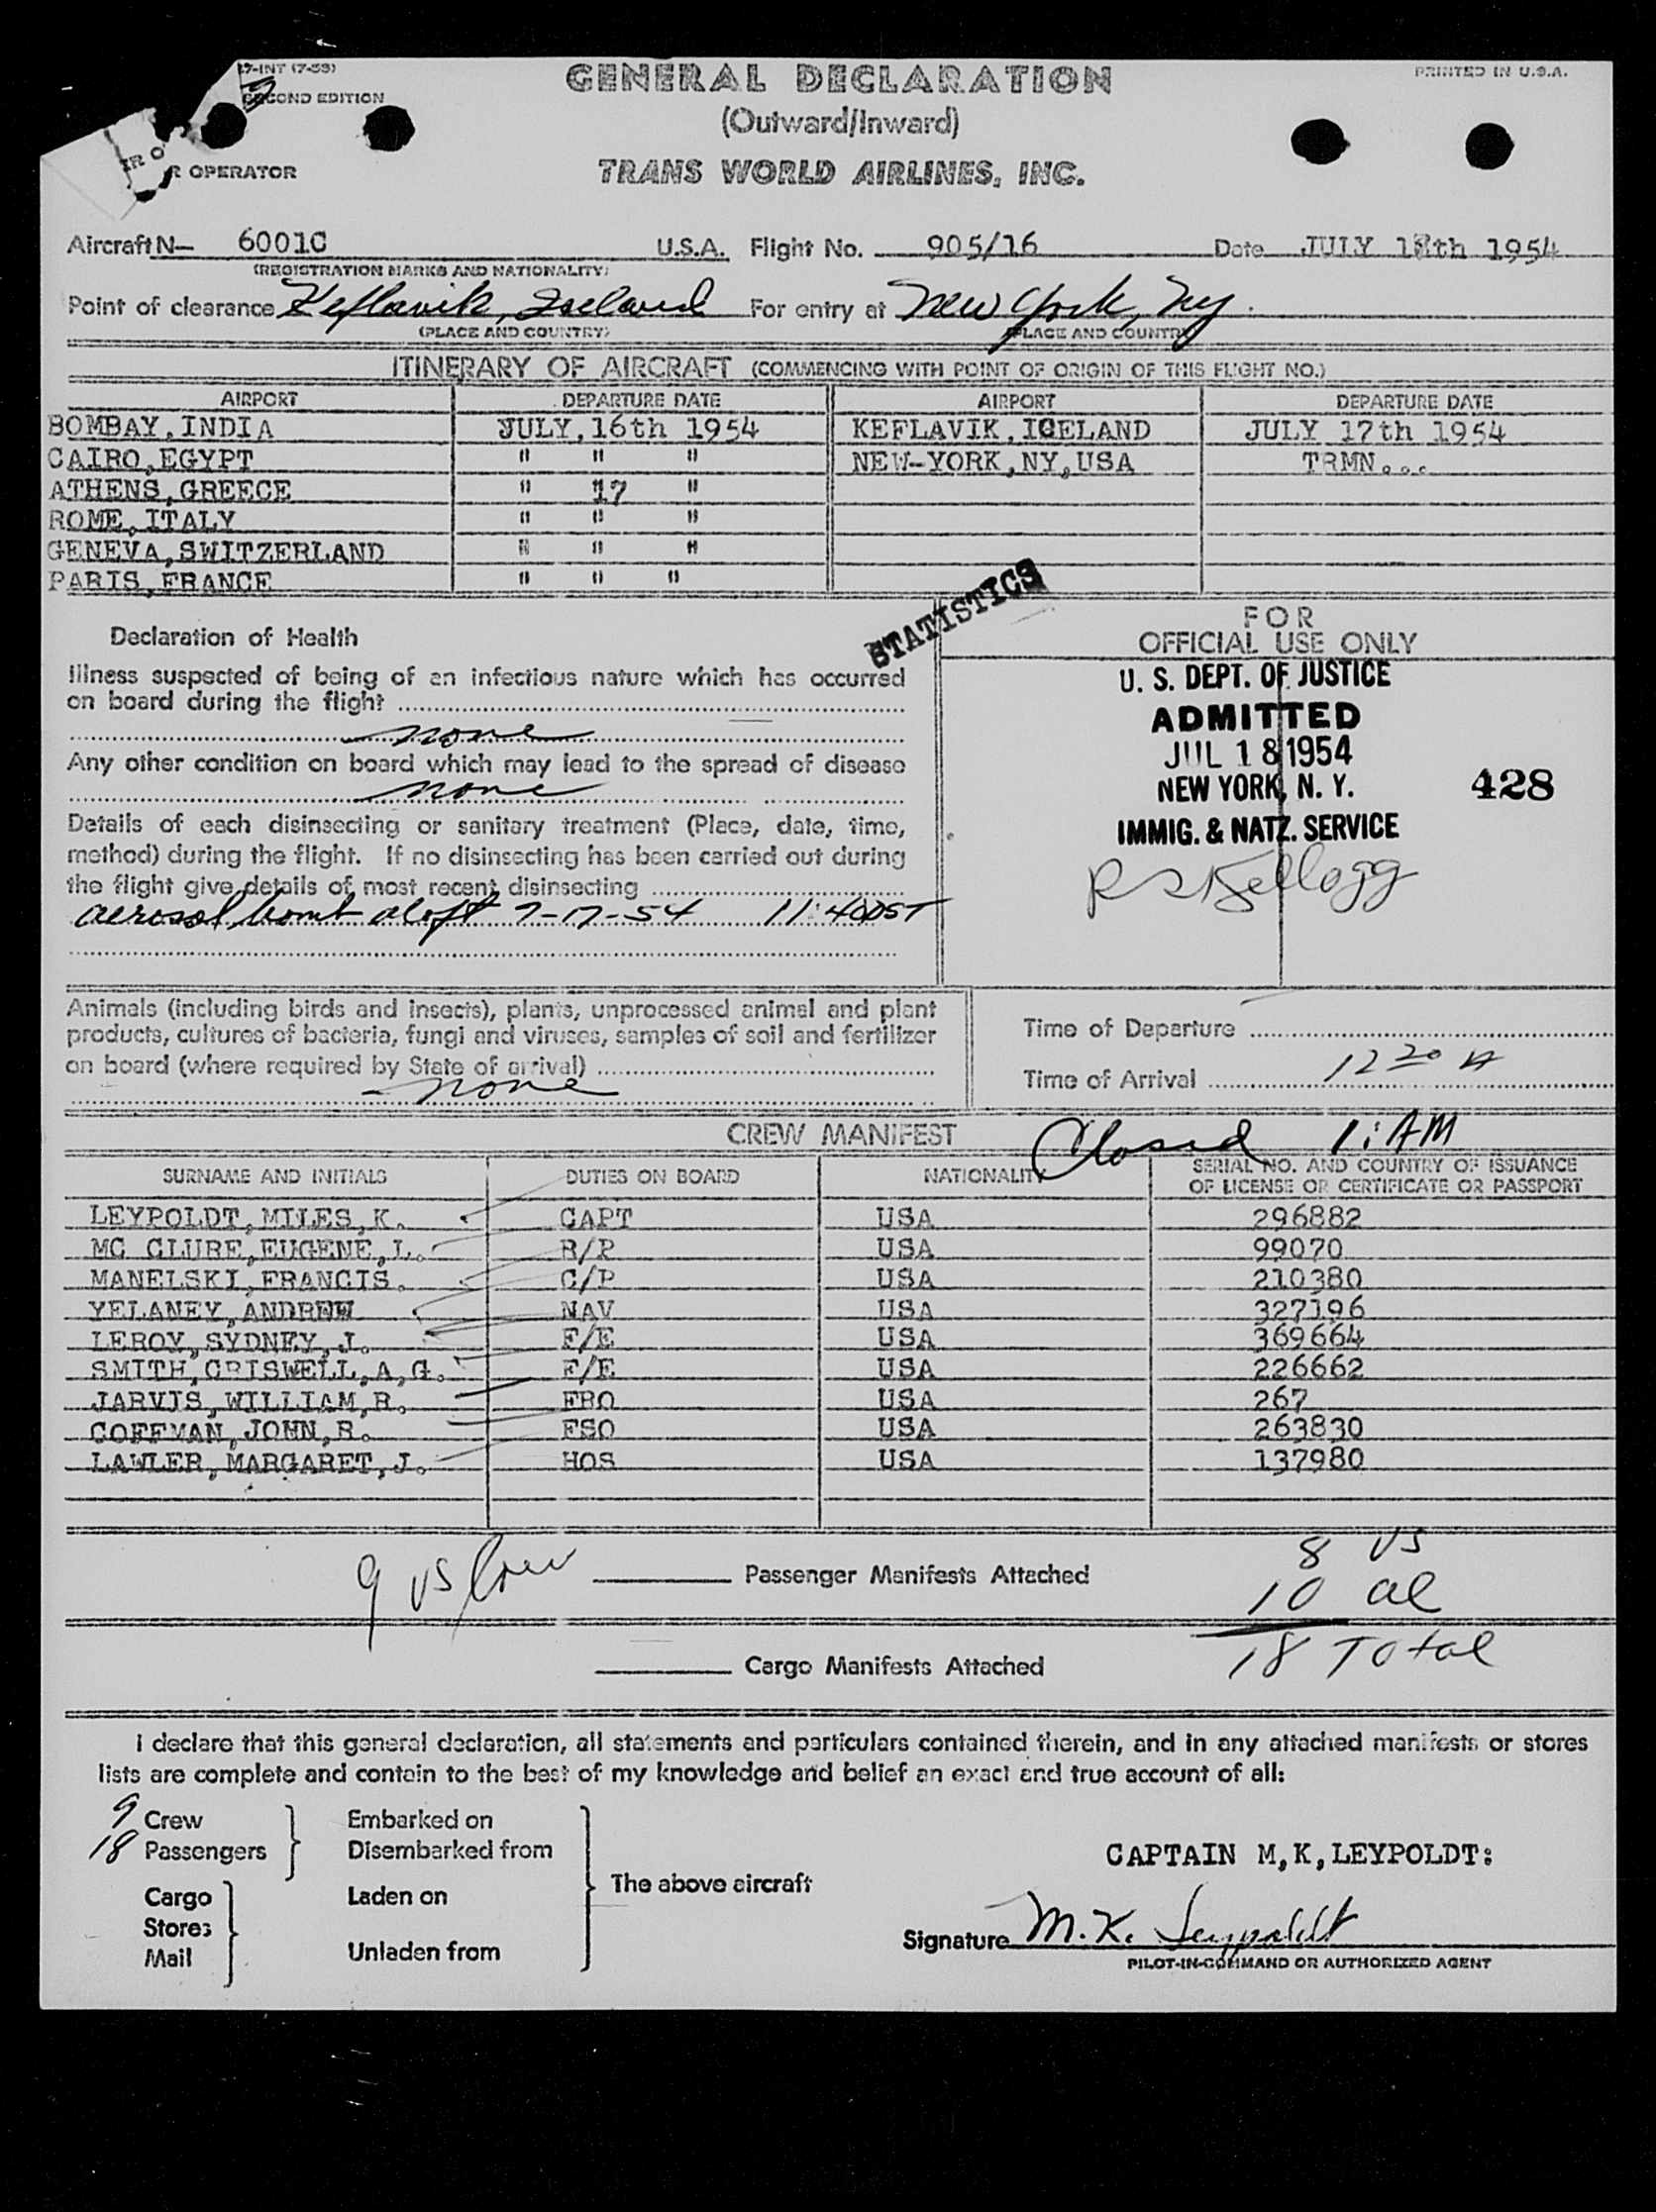 27-INT (7-53)
SECOND EDITION
R OPERATOR
GENERAL DECLARATION
PRINTED IN U.S.A.
(Outward/Inward)
TRANS WORLD AIRLINES, INC.
Aircraft N— 6001C U.S.A. Flight No. 905/16 Date JULY 18th 1954
(REGISTRATION MARKS AND NATIONALITY)
Point of clearance Keflavik, Iceland For entry at New York, NY.
(PLACE AND COUNTRY) (PLACE AND COUNTRY)
ITINERARY OF AIRCRAFT (COMMENCING WITH POINT OF ORIGIN OF THIS FLIGHT NO.)
AIRPORT DEPARTURE DATE AIRPORT DEPARTURE DATE
BOMBAY, INDIA JULY, 16th 1954 KEFLAVIK, ICELAND JULY 17th 1954
CAIRO, EGYPT " " " NEW-YORK, NY, USA TRMN...
ATHENS, GREECE " 17 "
ROME, ITALY " " "
GENEVA, SWITZERLAND " " "
PARIS, FRANCE " " "
STATISTICS
Declaration of Health
Illness suspected of being of an infectious nature which has occurred
on board during the flight
none
Any other condition on board which may lead to the spread of disease
none
Details of each disinsecting or sanitary treatment (Place, date, time,
method) during the flight. If no disinsecting has been carried out during
the flight give details of most recent disinsecting
aerosol bomb aloft 7-17-54 11:40 DST
FOR
OFFICIAL USE ONLY
U. S. DEPT. OF JUSTICE
ADMITTED
JUL 18 1954
NEW YORK, N. Y. 428
IMMIG. & NATZ. SERVICE
R S Kellogg
Animals (including birds and insects), plants, unprocessed animal and plant
products, cultures of bacteria, fungi and viruses, samples of soil and fertilizer
on board (where required by State of arrival)
none
Time of Departure
Time of Arrival 12 20 A
CREW MANIFEST Closed 1: AM
SURNAME AND INITIALS DUTIES ON BOARD NATIONALITY SERIAL NO. AND COUNTRY OF ISSUANCE
OF LICENSE OR CERTIFICATE OR PASSPORT
LEYPOLDT, MILES, K. CAPT USA 296882
MC CLURE, EUGENE, L. R/P USA 99070
MANELSKI, FRANCIS. C/P USA 210380
YELANEY, ANDREW NAV USA 327196
LEROY, SYDNEY, J. F/E USA 369664
SMITH, CRISWELL, A, G. F/E USA 226662
JARVIS, WILLIAM, R. FRO USA 267
COFFMAN, JOHN, R. FSO USA 263830
LAWLER, MARGARET, J. HOS USA 137980
9 US Crew Passenger Manifests Attached
8 US
10 al
18 Total
Cargo Manifests Attached
I declare that this general declaration, all statements and particulars contained therein, and in any attached manifests or stores
lists are complete and contain to the best of my knowledge and belief an exact and true account of all:
9 Crew Embarked on
18 Passengers Disembarked from
The above aircraft
Cargo Laden on
Stores
Mail Unladen from
CAPTAIN M,K,LEYPOLDT:
Signature M.K. Leypoldt
PILOT-IN-COMMAND OR AUTHORIZED AGENT